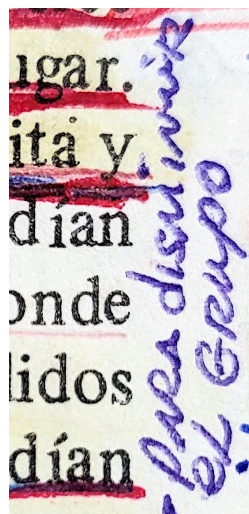 ugar.
ita y
dían
onde
lidos
dían
- Para disminuir
el GRUPO